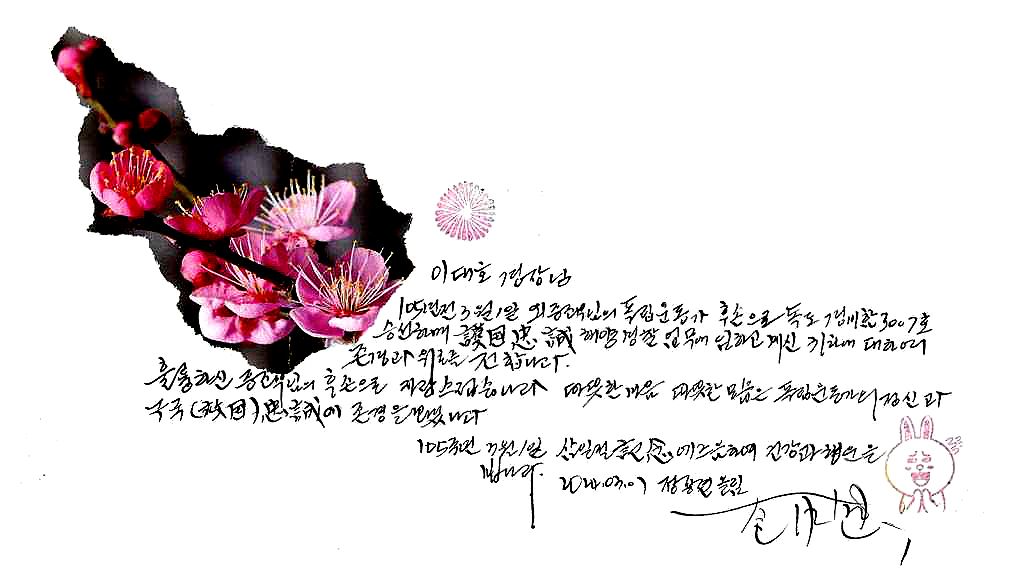 이대호 경장님
105년전 3월 1일 외증조부님의 독립운동가 후손으로 독도 경비함 3007호
승선하며 護國忠誠 해양경찰 업무에 임하고 계신 귀하에 대하여
존경과 위로를 전합니다.
훌륭하신 증조부님의 후손으로 자랑스럽습니다 따뜻한 마음 따뜻한 믿음은 독립운동가의 정신과
국국(救國)忠誠에 존경을
105주년 3월 1일 삼일절 記念 에즈음하여 건강과 행운을
빕니다.
2024.03.01 올림